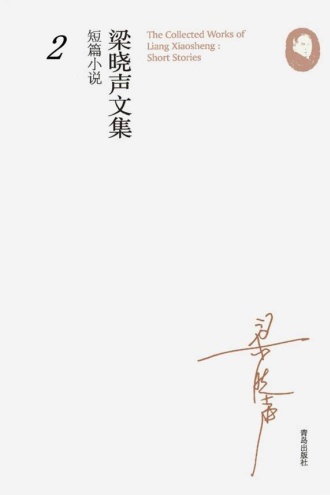 2
梁晓声文集
短篇小说
The Collected Works of
Liang Xiaosheng :
Short Stories
梁晓声
青岛出版社